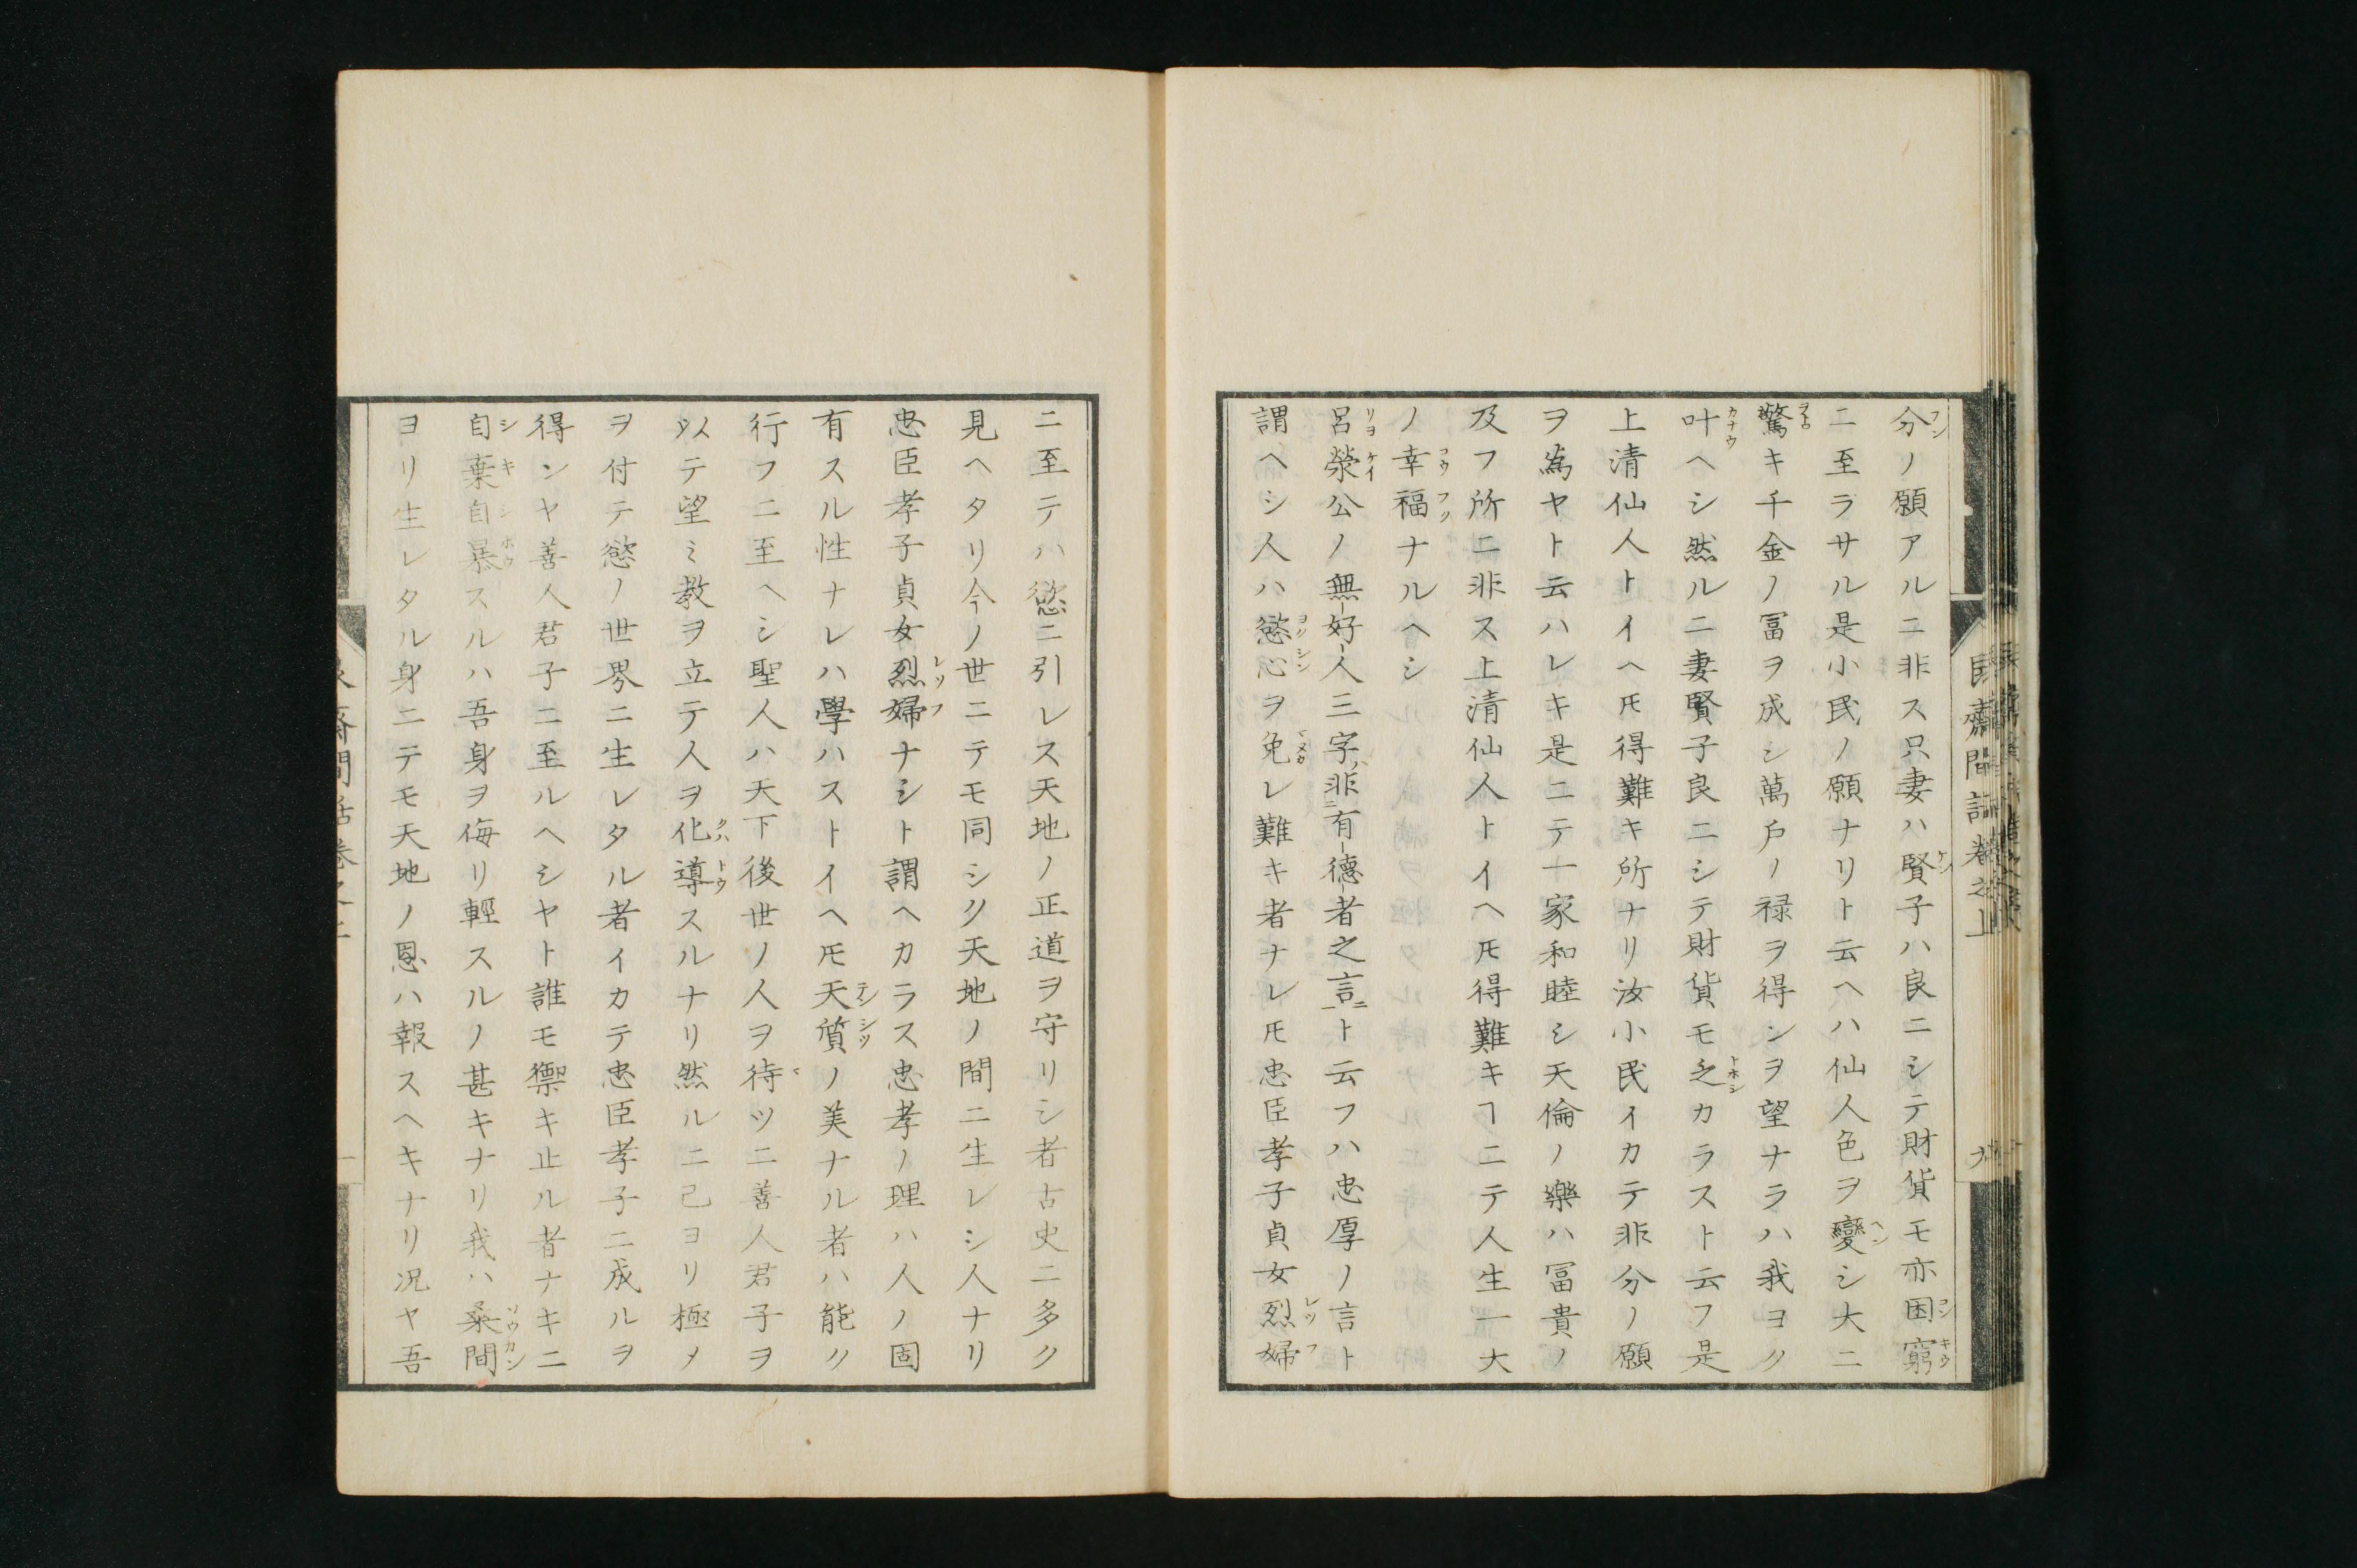 分ノ願アルニ非ス只妻ハ賢子ハ良ニシテ財貨モ亦困窮
ニ至ラサル是小民ノ願ナリト云ヘハ仙人色ヲ變シ大ニ
驚キ千金ノ冨ヲ成シ萬戸ノ禄ヲ得ンヲ望ナラハ我ヨク
叶ヘシ然ルニ妻賢子良ニシテ財貨モ乏カラスト云フ是
上清仙人トイヘ𪜈得難キ所ナリ汝小民イカテ非分ノ願
ヲ為ヤト云ハレキ是ニテ一家和睦シ天倫ノ樂ハ冨貴ノ
及フ所ニ非ス上清仙人トイヘ𪜈得難キヿニテ人生一大
ノ幸福ナルヘシ
呂滎公ノ無好人三字ハ非有德者之言ト云フハ忠厚ノ言ト
謂ヘシ人ハ慾心ヲ免レ難キ者ナレ𪜈忠臣孝子貞女烈婦
ニ至テハ慾ニ引レス天地ノ正道ヲ守リシ者古史ニ多ク
見ヘタリ今ノ世ニテモ同シク天地ノ間ニ生レシ人ナリ
忠臣孝子貞女烈婦ナシト謂ヘカラス忠孝ノ理ハ人ノ固
有スル性ナレハ學ハストイヘ𪜈天質ノ美ナル者ハ能ク
行フニ至ヘシ聖人ハ天下後世ノ人ヲ待ツニ善人君子ヲ
以テ望ミ教ヲ立テ人ヲ化導スルナリ然ルニ己ヨリ極メ
ヲ付テ慾ノ世界ニ生レタル者イカテ忠臣孝子ニ成ルヲ
得ンヤ善人君子ニ至ルヘシヤト誰モ禦キ止ル者ナキニ
自棄自暴スルハ吾身ヲ侮リ輕スルノ甚キナリ我ハ桑間
ヨリ生レタル身ニテモ天地ノ恩ハ報スヘキナリ况ヤ吾